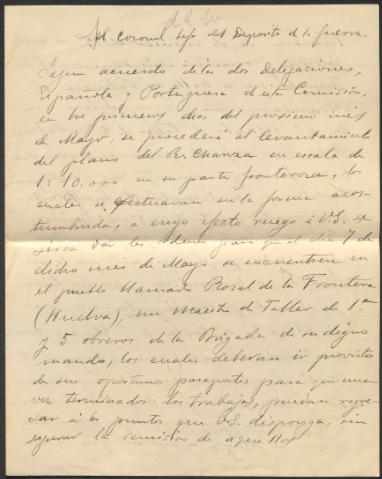 Al coronel Jefe del Deposito de la Guerra
Segun acuerdo de las dos Delegaciones,
Española y Portuguesa de esta Comisión,
en los primeros dias del proximo mes
de Mayo, se procederá al levantamiento
del plano del Rº Chanza en escala de
1:10.000 en su parte fronteriza, los
cuales se efectuaran en la forma acos-
tumbrada, a cuyo efecto ruego á V.S. se
sirva dar las ordenes para que el dia 7 de
dicho mes de Mayo se encuentren en
el pueblo llamado Rosal de la Frontera
(Huelva), un Maestro de Taller de 1ª
y 5 obreros de la Brigada de su digno
mando, los cuales deberan ir provistos
de sus oportunos pasaportes para que una
vez terminados los trabajos, puedan regre-
sar á los puntos que V.S. disponga, sin
esperar la remisión de aquellos